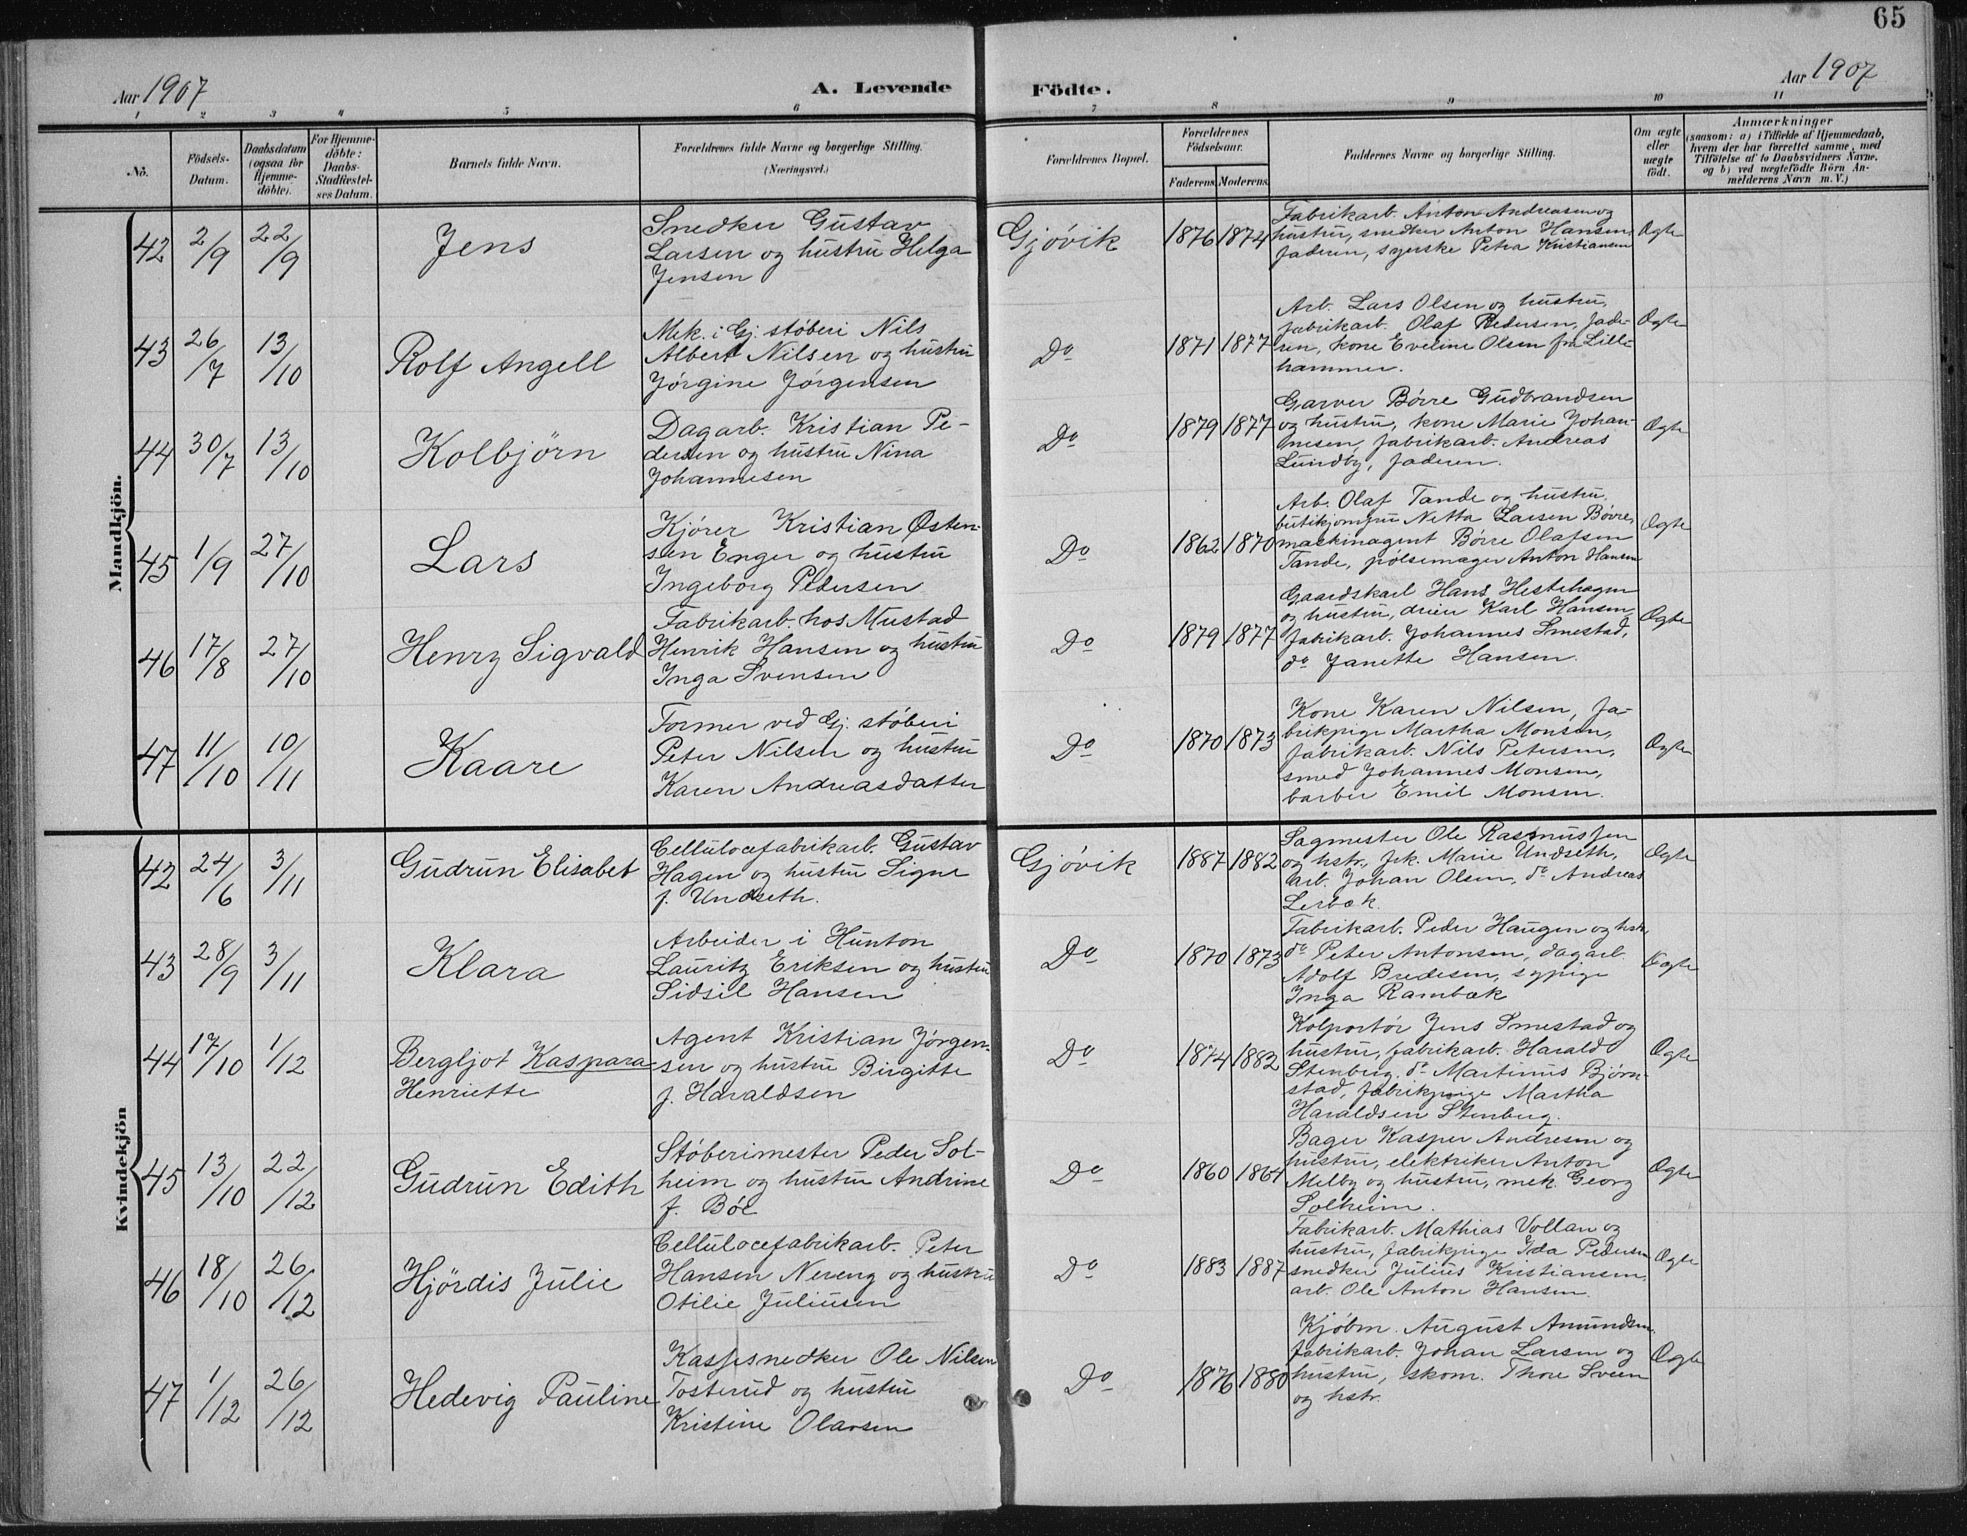 65
Aar 1907
A. Levende
Födte.
Aar 1907
1 2 3 4 5 6 7 8 9 10 11
No.
Födsels-
Datum.
Daabsdatum
(ogsaa for
Hjemme-
döbte).
For Hjemme-
döbte:
Daabs-
Stadfæstel-
ses Datum.
Barnets fulde Navn.
Forældrenes fulde Navne og borgerlige Stilling.
(Næringsvei.)
Forældrenes Bopæl.
Forældrenes
Födselsaar.
Faderens.
Moderens.
Faddernes Navne og borgerlige Stilling.
Om ægte
eller
uægte
födt.
Anmærkninger
(saasom: a) i Tilfælde af Hjemmedaab,
hvem der har forrettet samme, med
Tilföielse af to Daabsvidners Navne,
og b) ved uægtefödte Börn An-
melderens Navn m. V.)
Mandkjön.
42 2/9 22/9 Jens
Snedker Gustav
Larsen og hustru Helga
Jensen
Gjövik 1876 1874
Fabrikarb. Anton Andreasen og
hustru, snedker Anton Hansen,
faderen, syerske Petra Kristiansen
Ægte
43 26/7 13/10 Rolf Angell
Mek. i Gj. støberi Nils
Albert Nilsen og hustru
Jörgine Jörgensen
Do 1871 1877
Arb. Lars Olsen og hustru,
fabrikarb. Olaf Pedersen, fade-
ren, kone Eveline Olsen fra Lille-
hammer.
Ægte
44 30/7 13/10 Kolbjörn
Dagarb. Kristian Pe-
dersen og hustru Nina
Johannesen
Do 1879 1877
Garver Börre Gudbrandsen
og hustru, kone Marie Johan-
nesen, fabrikarb. Andreas
Lundby, faderen.
Ægte
45 1/9 27/10 Lars
Kjörer Kristian Østen-
sen Enger og hustru
Ingeborg Pedersen
Do 1862 1870
Arb. Olaf Tande og hustru,
butikjomfru Netta Larsen Bövre,
maskinagent Börre Olafsen
Tande, pölsemager Anton Hansen
Ægte
46 17/8 27/10 Henry Sigvald
Fabrikarb. hos Mustad
Henrik Hansen og hustru
Inga Svensen
Do 1879 1877
Gaardskarl Hans Hestehagen
og hustru, dreier Karl Hansen,
fabrikarb. Johannes Smestad,
do Janette Hansen.
Ægte
47 11/10 10/11 Kaare
Former ved Gj. støberi
Peter Nilsen og hustru
Karen Andreasdatter
Do 1870 1873
Kone Karen Nilsen, fa-
brikpige Martha Monsen,
fabrikarb. Nils Petersen,
smed Johannes Monsen,
barber Emil Monsen.
Ægte
Kvindekjön
42 24/6 3/11 Gudrun Elisabet
Cellulocefabrikarb. Gustav
Hagen og hustru Signe
f. Undseth.
Gjövik 1887 1882
Sagmester Ole Rasmussen
og hstr., frk. Marie Undseth,
arb. Johan Olsen, do Andreas
Lerbæk.
Ægte
43 28/9 3/11 Klara
Arbeider i Hunton
Lauritz Eriksen og hustru
Sidsil Hansen
Do 1870 1873
Fabrikarb. Peder Haugen og hstr,
do Peter Antonsen, dagarb.
Adolf Bredesen, sypige
Inga Rambæk
Ægte
44 17/10 1/12 Bergljot Kaspara
Henriette
Agent Kristian Jörgen-
sen og hustru Birgitte
f. Haraldsen
Do 1874 1882
Kolportör Jens Smestad og
hustru, fabrikarb. Harald
Stenberg, do Martinus Björn-
stad, fabrikpige Martha
Haraldsen Stenberg.
Ægte
45 13/10 22/12 Gudrun Edith
Støberimester Peder Sol-
heim og hustru Andrine
f. Böe
Do 1860 1864
Bager Kasper Andresen og
hustru, elektriker Anton
Melby og hustru, mek. Georg
Solheim.
Ægte
46 18/10 26/12 Hjördis Julie
Cellulocefabrikarb. Peter
Hansen Nereng og hustru
Otilie Juliusen
Do 1883 1887
Fabrikarb. Mathias Vollan og
hustru, fabrikpige Ida Pedersen
snedker Julius Kristiansen,
arb. Ole Anton Hansen.
Ægte
47 1/12 26/12 Hedevig Pauline
Kassesnedker Ole Nilsen
Tosterud og hustru
Kristine Olavsen
Do 1876 1880
Kjöbm. August Amundsen
fabrikarb. Johan Larsen og
hustru, skom. Thore Sveen
og hstr.
Ægte